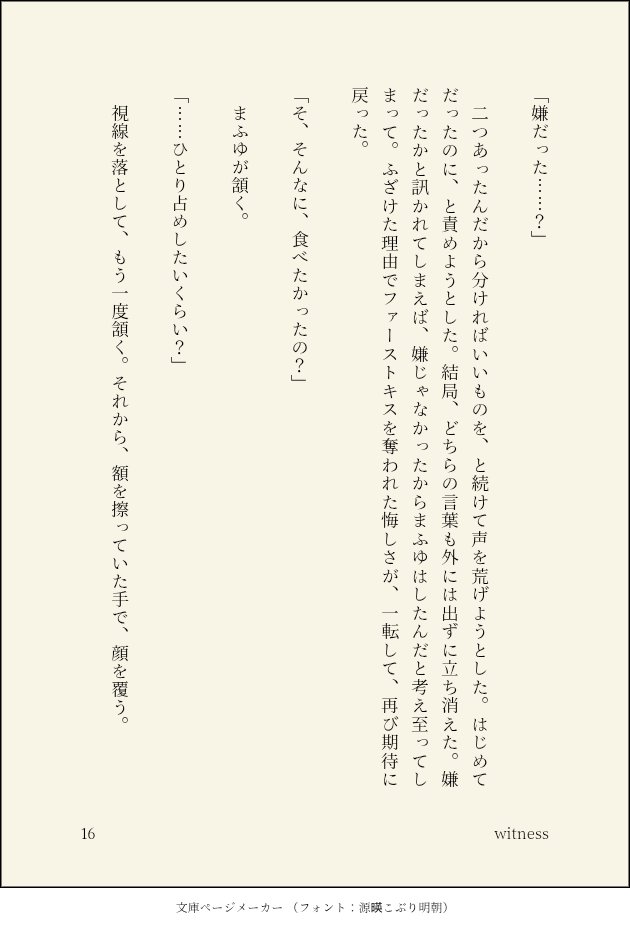 「嫌だった……？」
　二つあったんだから分ければいいものを、と続けて声を荒げようとした。はじめて
だったのに、と責めようとした。結局、どちらの言葉も外には出ずに立ち消えた。嫌
だったかと訊かれてしまえば、嫌じゃなかったからまふゆはしたんだと考え至ってし
まって。ふざけた理由でファーストキスを奪われた悔しさが、一転して、再び期待に
戻った。
「そ、そんなに、食べたかったの？」
　まふゆが頷く。
「……ひとり占めしたいくらい？」
　視線を落として、もう一度頷く。それから、額を擦っていた手で、顔を覆う。
16
witness
文庫ページメーカー （フォント：源暎こぶり明朝）